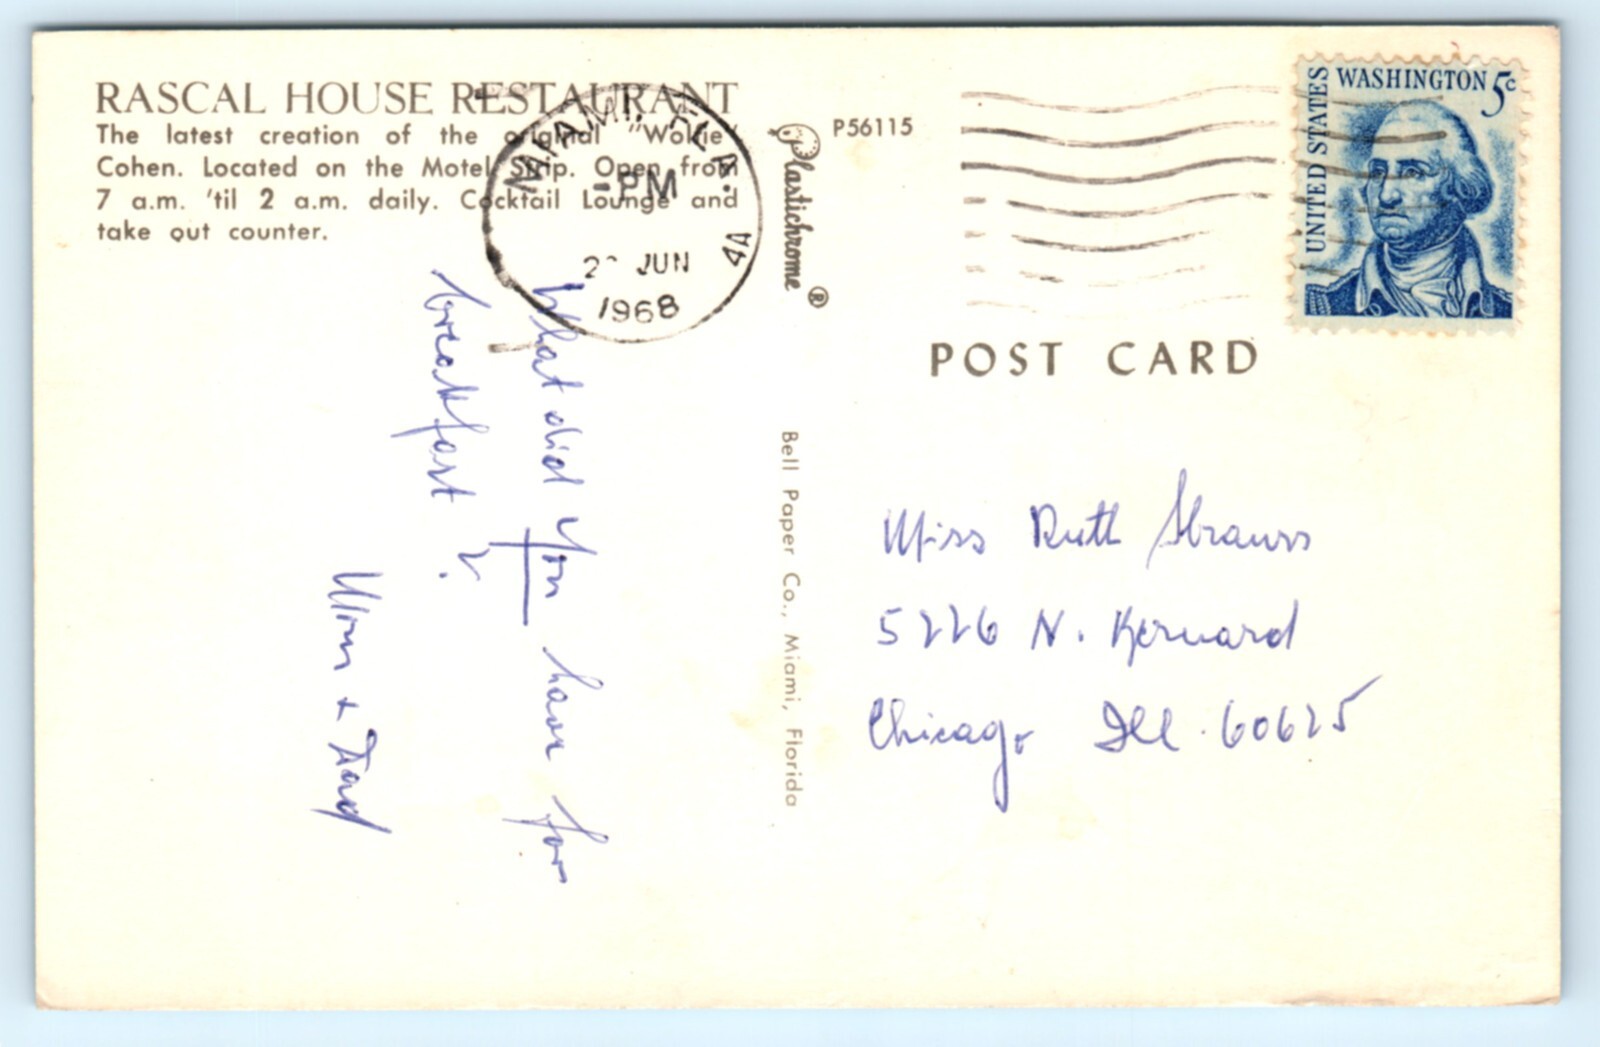 RASCAL HOUSE RESTAURANT
The latest creation of the original "Wolfie"
Cohen. Located on the Motel Strip. Open from
7 a.m. 'til 2 a.m. daily. Cocktail Lounge and
take out counter.
MIAMI, FLA.
-PM
JUN
1968
P56115
Plastichrome ®
UNITED STATES
WASHINGTON 5c
POST CARD
Bell Paper Co., Miami, Florida
What did you have for
breakfast?
Mom + Dad
Miss Ruth Strauss
5226 N. Bernard
Chicago Ill. 60625